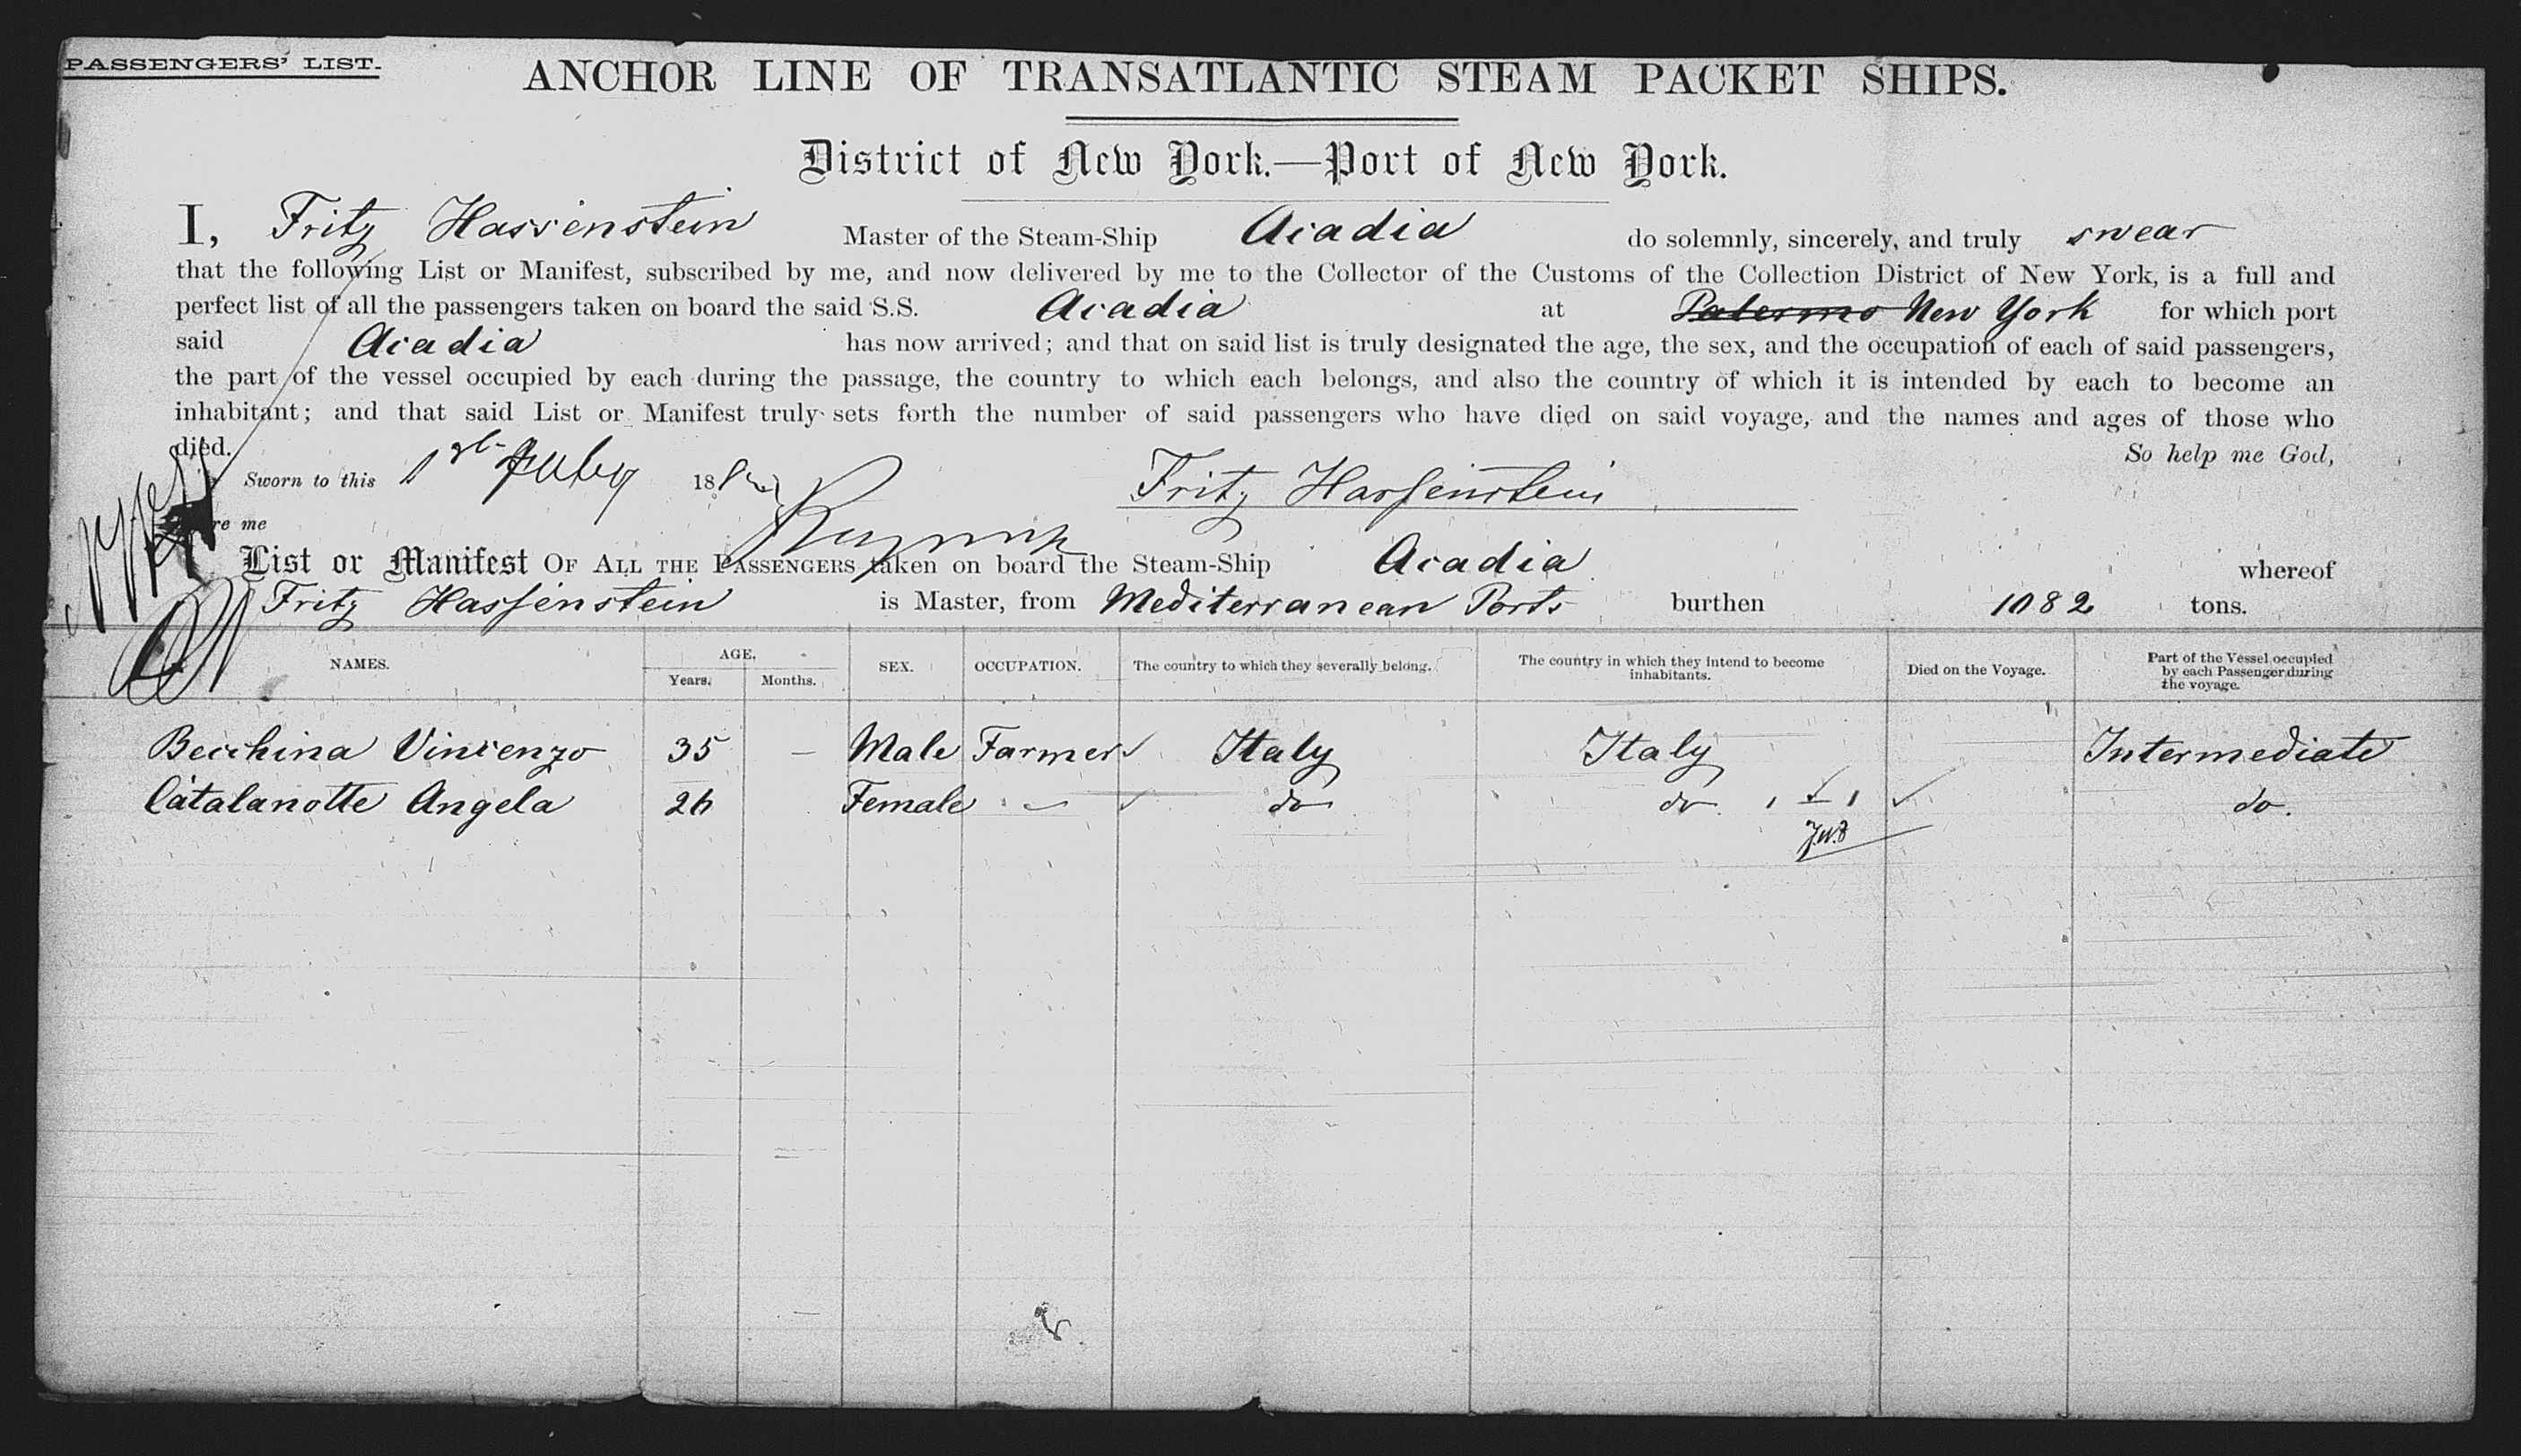 PASSENGERS' LIST.
ANCHOR LINE OF TRANSATLANTIC STEAM PACKET SHIPS.
District of New York.—Port of New York.
I, Fritz Hassenstein Master of the Steam-Ship Acadia do solemnly, sincerely, and truly swear
that the following List or Manifest, subscribed by me, and now delivered by me to the Collector of the Customs of the Collection District of New York, is a full and
perfect list of all the passengers taken on board the said S.S. Acadia at Palermo New York for which port
said Acadia has now arrived; and that on said list is truly designated the age, the sex, and the occupation of each of said passengers,
the part of the vessel occupied by each during the passage, the country to which each belongs, and also the country of which it is intended by each to become an
inhabitant; and that said List or Manifest truly sets forth the number of said passengers who have died on said voyage, and the names and ages of those who
died. So help me God,
Sworn to this 1st July 18 Fritz Hassenstein
re me
List or Manifest OF ALL THE PASSENGERS taken on board the Steam-Ship Acadia whereof
Fritz Hassenstein is Master, from Mediterranean Ports burthen 1082 tons.
NAMES. AGE. Years. Months. SEX. OCCUPATION. The country to which they severally belong. The country in which they intend to become inhabitants. Died on the Voyage. Part of the Vessel occupied by each Passenger during the voyage.
Becchina Vincenzo 35 – Male Farmer Italy Italy Intermediate
Catalanotte Angela 26 Female – do do. do.